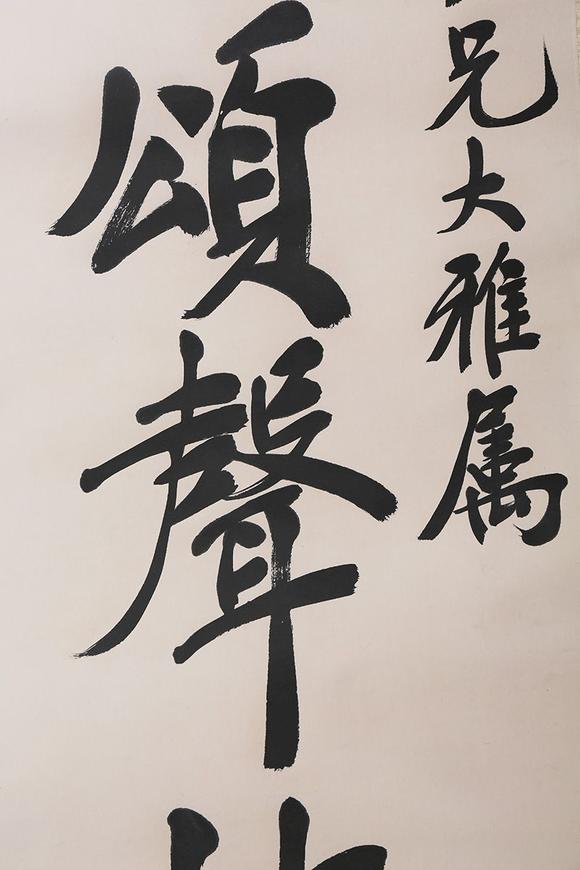 兄大雅属
頌聲